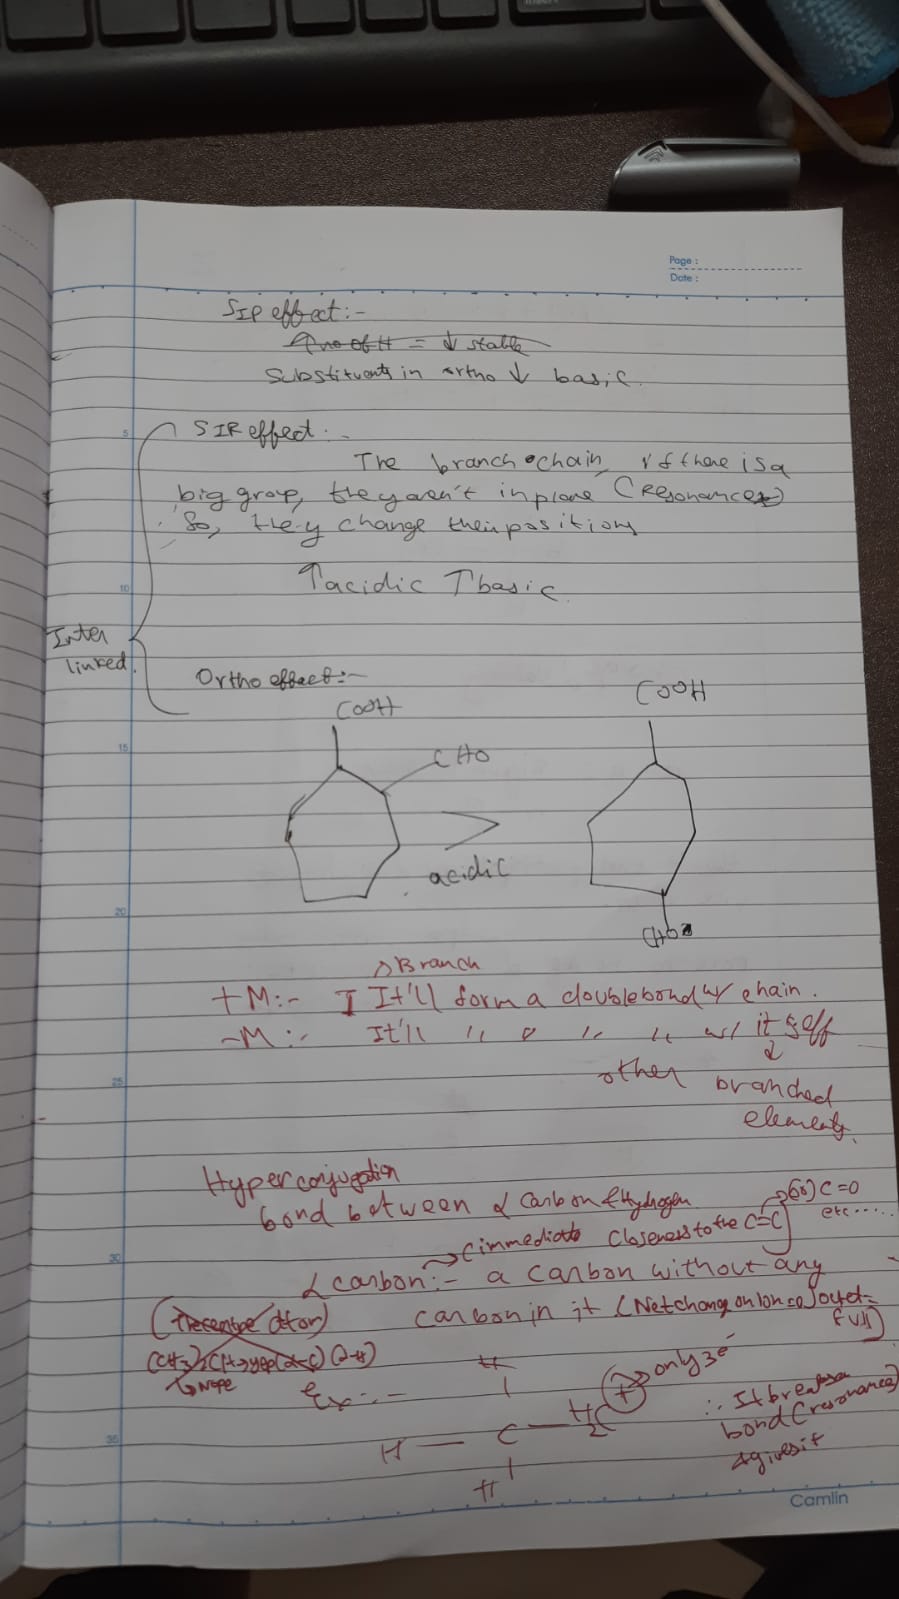 Page :
Date :
SIP effect :-
↑no of H = ↓ stable
Substituents in ortho ↓ basic.
5
SIR effect :-
The branch chain, if there is a
big group, they aren't in plane (resonance)
So, they change their positions
↑acidic ↑basic.
10
Inter
linked.
Ortho effect :-
COOH
COOH
15
CHO
>
acidic
20
CHO
Branch
+M :- I It'll form a double bond w/ chain.
-M :- It'll " " " " w/ itself
other branched
elements.
25
Hyperconjugation
bond between α carbon & Hydrogen
(or) C=O
etc.....
(immediate closeness to the C=C)
30
α carbon :- a carbon without any
carbon in it (Net change on ion = 0) octet =
full)
Nope
Ex :-
H
H — C — H2C +
only 3e-
H
∴ It breaks a
bond (resonance)
& gives it
35
Camlin